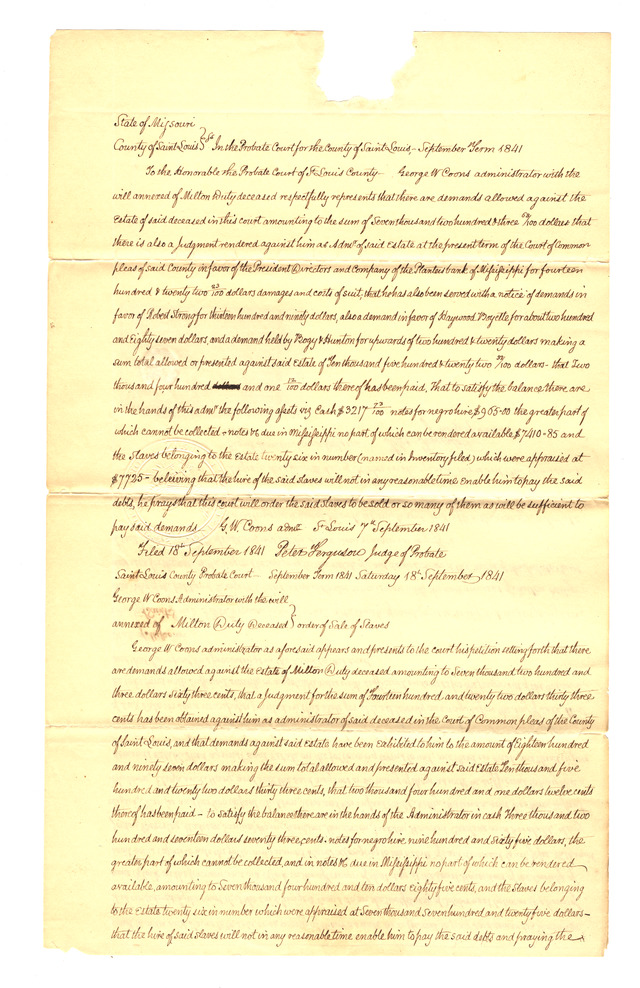 State of Missouri
County of Saint Louis } Sct In the Probate Court for the County of Saint Louis, - September Term 1841
To the Honorable the Probate Court of St Louis County - George W Coons administrator with the
will annexed of Milton Duty deceased respectfully represents that there are demands allowed against the
Estate of said deceased in this court amounting to the sum of Seven thousand two hundred & three 63/100 dollars that
there is also a Judgment rendered against him as Admr of said Estate at the present term of the Court of Common
pleas of said County in favor of the President Directors and company of the Planters bank of Missisippi for fourteen
hundred & twenty two 33/100 dollars damages and costs of suit, that he has also been served with a notice of demands in
favor of Robert Strong for thirteen hundred and ninety dollars, also a demand in favor of Haywood for about two hundred
and Eighty seven dollars, and a demand held by Bogy & Hunton for upwards of two hundred & twenty dollars making a
sum total allowed or presented against said Estate of Ten thousand five hundred & twenty two 33/100 dollars - that Two
thousand four hundred and one 12/100 dollars thereof has been paid, That to satisfy the balance there are
in the hands of this admr the following assets viz Cash $3217 73/100 notes for negro hire $965-00 the greater part of
which cannot be collected & notes &c due in Missisippi no part of which can be rendered available $7410-85 and
the Slaves belonging to the Estate twenty six in number (named in Inventory filed) which were appraised at
$7725 - beleiving that the hire of the said slaves will not in any reasonable time enable him to pay the said
debts, he prays that this court will order the said slaves to be sold or so many of them as will be sufficient to
pay said demands G. W Coons St Louis 7th September 1841
Filed 18th September 1841 Peter Ferguson Judge of Probate
Saint Louis County Probate Court - September Term 1841 Saturday 18th September 1841
George W Coons Administrator with the will
annexed of Milton Duty Deceased } order of Sale of Slaves
George W Coons administrator as aforesaid appears and presents to the court his petition setting forth that there
are demands allowed against the Estate of Milton Duty deceased amounting to Seven thousand two hundred and
three dollars sixty three cents, that a judgment for the sum of Fourteen hundred and twenty two dollars thirty three
cents has been obtained against him as administrator of said deceased in the Court of Common pleas of the County
of Saint Louis, and that demands against said Estate have been exhibited to him to the amount of Eighteen hundred
and ninety seven dollars making the sum total allowed and presented against said Estate Ten thousand five
hundred and twenty two dollars thirty three cents, that two thousand four hundred and one dollars twelve cents
thereof has been paid - to satisfy the balance there are in the hands of the Administrator in cash Three thousand two
hundred and seventeen dollars seventy three cents. notes for negro hire nine hundred and sixty five dollars, the
greater part of which cannot be collected, and in notes &c due in Missisippi no part of which can be rendered
available, amounting to Seven thousand four hundred and ten dollars eighty five cents, and the Slaves belonging
to the Estate twenty six in number which were appraised at Seven thousand Seven hundred and twenty five dollars -
that the hire of said slaves will not in any reasonable time enable him to pay the said debts and praying the